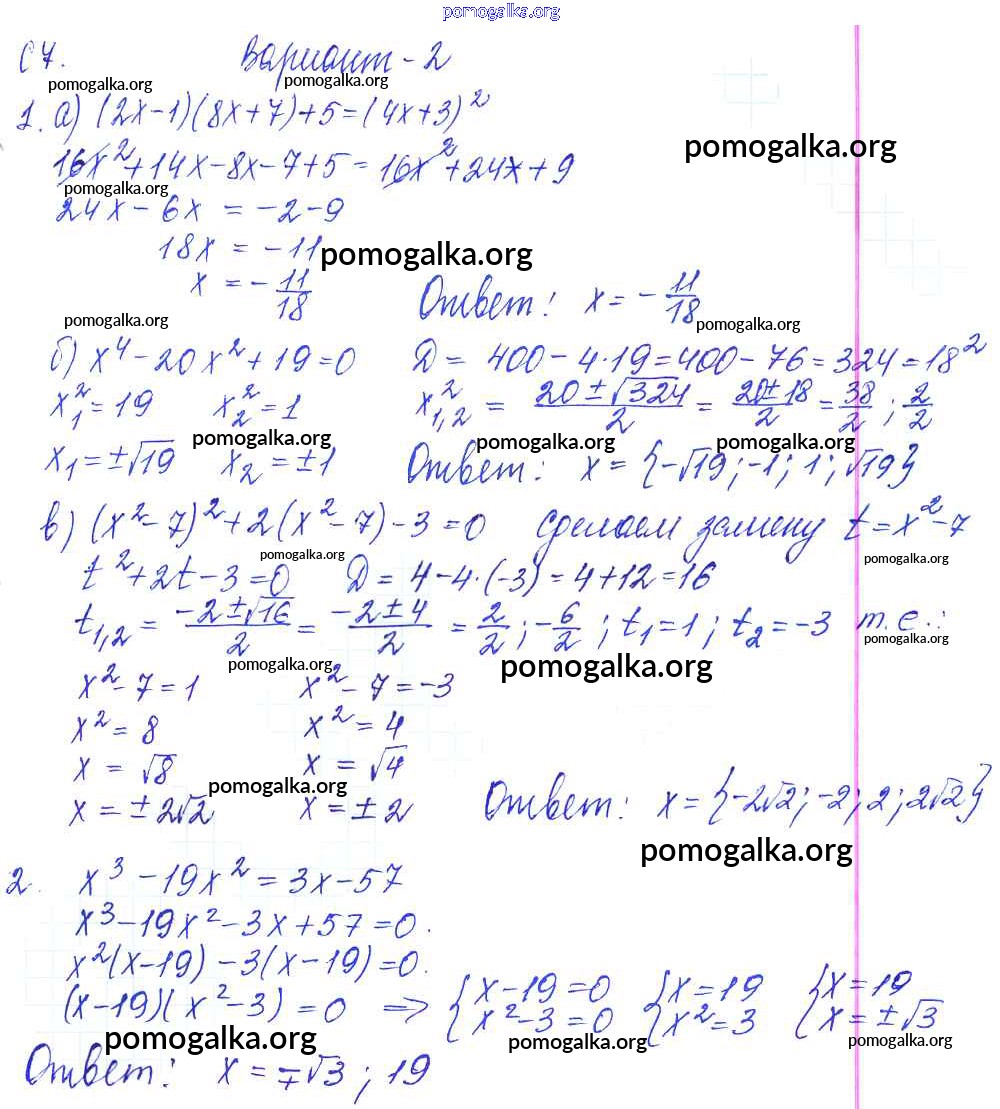 pomogalka.org
С7. Вариант - 2
pomogalka.org pomogalka.org
1. а) (2x-1)(8x+7)+5=(4x+3)²
pomogalka.org
16x²+14x-8x-7+5=16x²+24x+9
pomogalka.org
24x-6x=-2-9
18x=-11
pomogalka.org
x=-11/18 Ответ: x=-11/18
pomogalka.org pomogalka.org
б) x⁴-20x²+19=0 Д=400-4·19=400-76=324=18²
x₁²=19 x₂²=1 x²₁,₂=(20±√324)/2=(20±18)/2=38/2; 2/2
pomogalka.org pomogalka.org pomogalka.org
x₁=±√19 x₂=±1 Ответ: x={-√19;-1;1;√19}
в) (x²-7)²+2(x²-7)-3=0 сделаем замену t=x²-7
pomogalka.org pomogalka.org
t²+2t-3=0 Д=4-4·(-3)=4+12=16
t₁,₂=(-2±√16)/2=(-2±4)/2=2/2;-6/2; t₁=1; t₂=-3 т.е.:
pomogalka.org pomogalka.org pomogalka.org
x²-7=1 x²-7=-3
x²=8 x²=4
x=√8 x=√4
pomogalka.org
x=±2√2 x=±2 Ответ: x={-2√2;-2;2;2√2}
pomogalka.org
2. x³-19x²=3x-57
x³-19x²-3x+57=0.
x²(x-19)-3(x-19)=0.
(x-19)(x²-3)=0 ⇒ {x-19=0 {x=19 {x=19
{x²-3=0 {x²=3 {x=±√3
pomogalka.org pomogalka.org pomogalka.org
Ответ: x=∓√3; 19